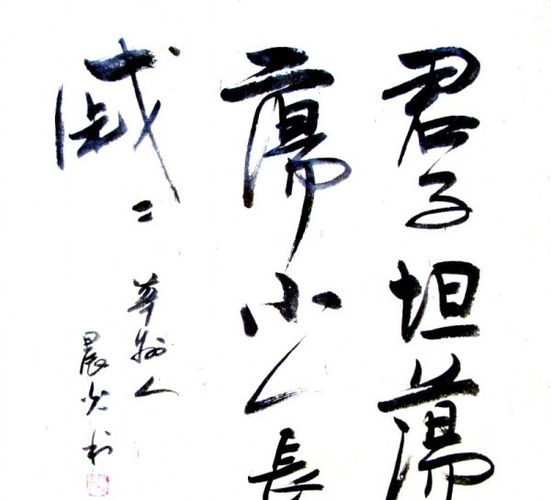 君子坦蕩
蕩小人長
戚〻
華州人
晨光